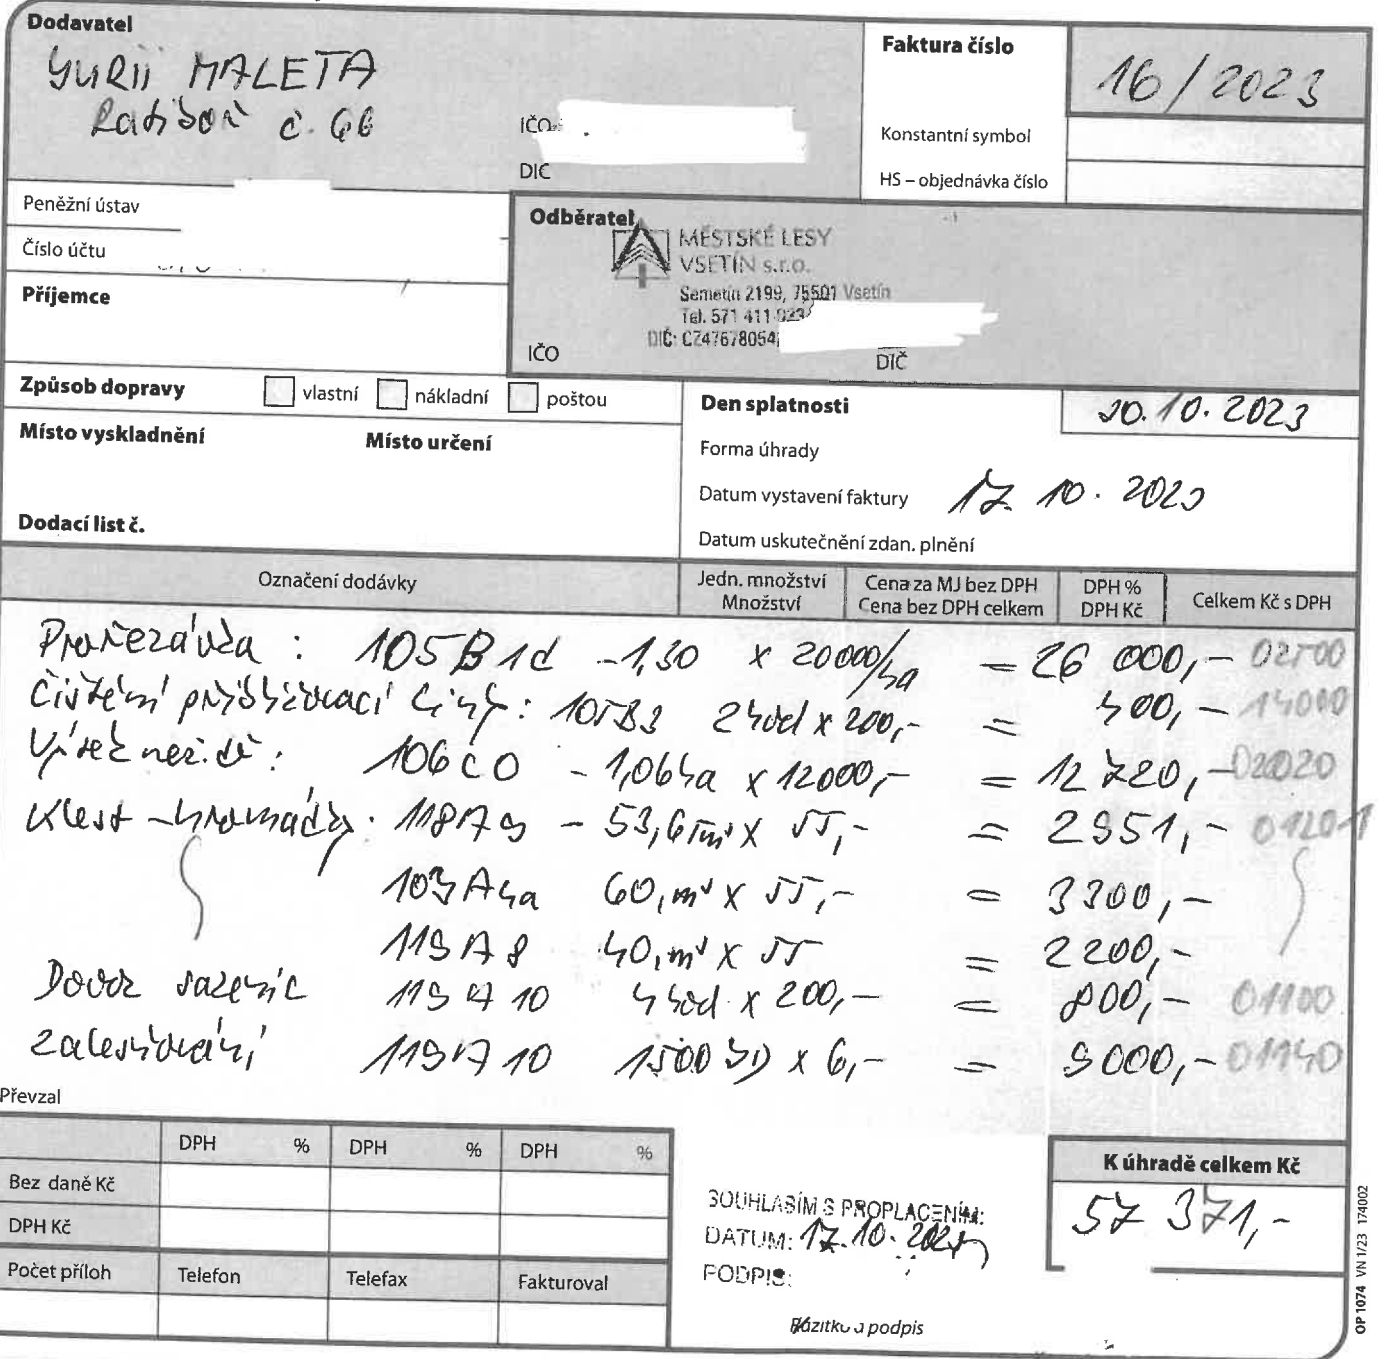 Dodavatel
YURII MALETA
Ratiboř č. 66
IČO
DIČ
Faktura číslo
16/2023
Konstantní symbol
HS – objednávka číslo
Peněžní ústav
Číslo účtu
Příjemce
Odběratel
MĚSTSKÉ LESY
VSETÍN s.r.o.
Semetín 2199, 75501 Vsetín
Tel. 571 411 923
DIČ: CZ47678054
IČO
DIČ
Způsob dopravy vlastní nákladní poštou
Místo vyskladnění Místo určení
Dodací list č.
Den splatnosti 30.10.2023
Forma úhrady
Datum vystavení faktury 17.10.2023
Datum uskutečnění zdan. plnění
Označení dodávky
Jedn. množství
Množství
Cena za MJ bez DPH
Cena bez DPH celkem
DPH %
DPH Kč
Celkem Kč s DPH
Prořezávka : 105B1d – 1,30 x 20000/ha = 26 000,- 02500
Čištění přibližovací linky: 105B3 2hod x 200,- = 400,- 14000
106C0 – 1,06ha x 12000,- = 12 720,- 02020
Klest – hromády. 118A9 – 53,65m³ x 55,- = 2951,- 01201
103A4a 60,m³ x 55,- = 3300,-
119A8 40,m³ x 55 = 2200,-
Dovoz sazenic 119A10 4hod x 200,- = 800,- 01100
Zalesňování 119A10 1500 x 6,- = 9000,- 01140
Převzal
DPH % DPH % DPH %
Bez daně Kč
DPH Kč
Počet příloh Telefon Telefax Fakturoval
SOUHLASÍM S PROPLACENÍM:
DATUM: 17.10.2023
PODPIS:
Razítko a podpis
K úhradě celkem Kč
57 371,-
OP 1074 VN 1/23 174002